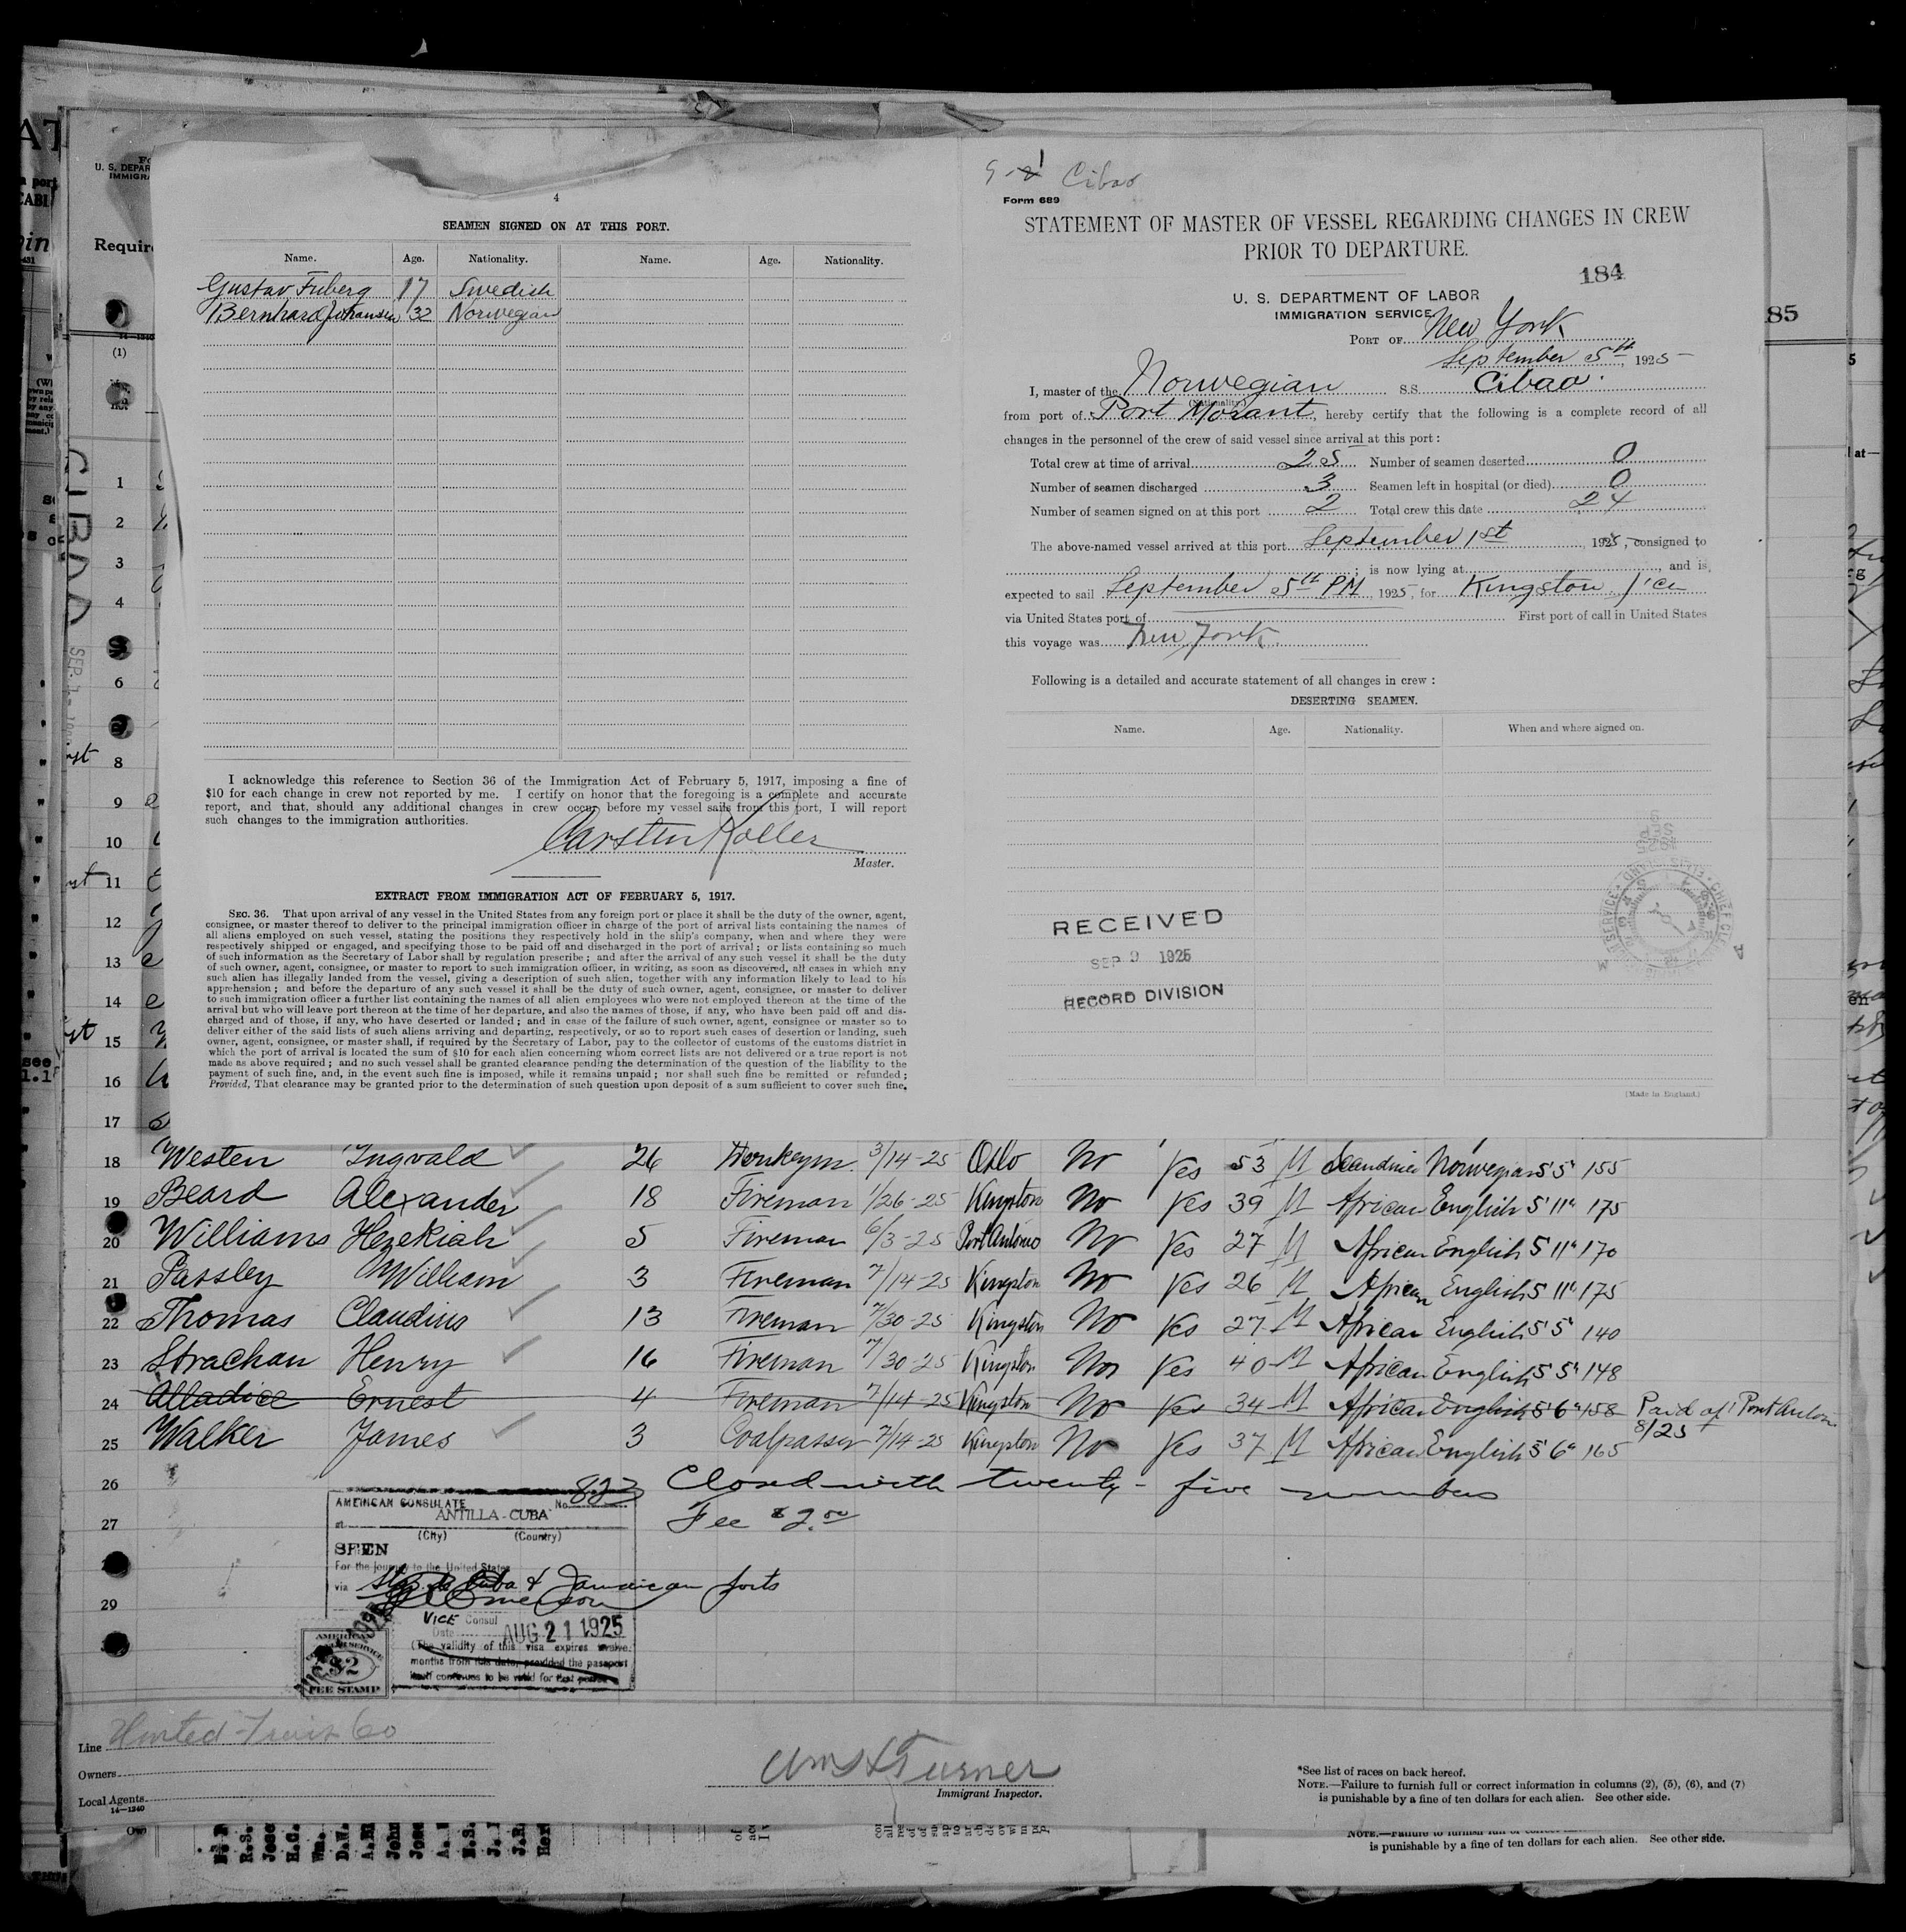 4
SEAMEN SIGNED ON AT THIS PORT.
Name. Age. Nationality. Name. Age. Nationality.
Gustav Friberg 17 Swedish
Bernhard Johansen 32 Norwegian
I acknowledge this reference to Section 36 of the Immigration Act of February 5, 1917, imposing a fine of
$10 for each change in crew not reported by me. I certify on honor that the foregoing is a complete and accurate
report, and that, should any additional changes in crew occur before my vessel sails from this port, I will report
such changes to the immigration authorities.
Carsten Koller
Master.
EXTRACT FROM IMMIGRATION ACT OF FEBRUARY 5, 1917.
SEC. 36. That upon arrival of any vessel in the United States from any foreign port or place it shall be the duty of the owner, agent,
consignee, or master thereof to deliver to the principal immigration officer in charge of the port of arrival lists containing the names of
all aliens employed on such vessel, stating the positions they respectively hold in the ship's company, when and where they were
respectively shipped or engaged, and specifying those to be paid off and discharged in the port of arrival; or lists containing so much
of such information as the Secretary of Labor shall by regulation prescribe; and after the arrival of any such vessel it shall be the duty
of such owner, agent, consignee, or master to report to such immigration officer, in writing, as soon as discovered, all cases in which any
such alien has illegally landed from the vessel, giving a description of such alien, together with any information likely to lead to his
apprehension; and before the departure of any such vessel it shall be the duty of such owner, agent, consignee, or master to deliver
to such immigration officer a further list containing the names of all alien employees who were not employed thereon at the time of the
arrival but who will leave port thereon at the time of her departure, and also the names of those, if any, who have been paid off and dis-
charged and of those, if any, who have deserted or landed; and in case of the failure of such owner, agent, consignee or master so to
deliver either of the said lists of such aliens arriving and departing, respectively, or so to report such cases of desertion or landing, such
owner, agent, consignee, or master shall, if required by the Secretary of Labor, pay to the collector of customs of the customs district in
which the port of arrival is located the sum of $10 for each alien concerning whom correct lists are not delivered or a true report is not
made as above required; and no such vessel shall be granted clearance pending the determination of the question of the liability to the
payment of such fine, and, in the event such fine is imposed, while it remains unpaid; nor shall such fine be remitted or refunded;
Provided, That clearance may be granted prior to the determination of such question upon deposit of a sum sufficient to cover such fine.
Cibao
Form 689
STATEMENT OF MASTER OF VESSEL REGARDING CHANGES IN CREW
PRIOR TO DEPARTURE.
184
U. S. DEPARTMENT OF LABOR
IMMIGRATION SERVICE
PORT OF New York
September 5th, 1925
I, master of the Norwegian S.S. Cibao.
(Nationality.)
from port of Port Morant, hereby certify that the following is a complete record of all
changes in the personnel of the crew of said vessel since arrival at this port:
Total crew at time of arrival 25 Number of seamen deserted 0
Number of seamen discharged 3 Seamen left in hospital (or died) 0
Number of seamen signed on at this port 2 Total crew this date 24
The above-named vessel arrived at this port September 1st, 1925, consigned to
; is now lying at , and is
expected to sail September 5th PM, 1925, for Kingston J'ca
via United States port of First port of call in United States
this voyage was New York
Following is a detailed and accurate statement of all changes in crew:
DESERTING SEAMEN.
Name. Age. Nationality. When and where signed on.
RECEIVED
SEP 9 1925
RECORD DIVISION
[Made in England.]
85
U. S. DEPAR
IMMIGRA
Requir
(1)
CIBAO
SEP
1
2
3
4
6
8
9
10
11
12
13
14
15
16
17
18 Westen Ingvald 26 Donkeym. 3/14-25 Oslo No Yes 53 M Scandin Norwegian 5'5" 155
19 Beard Alexander 18 Fireman 1/26-25 Kingston No Yes 39 M African English 5'11" 175
20 Williams Hezekiah 5 Fireman 6/3-25 Port Antonio No Yes 27 M African English 5'11" 170
21 Passley William 3 Fireman 7/14-25 Kingston No Yes 26 M African English 5'11" 175
22 Thomas Claudius 13 Fireman 7/30-25 Kingston No Yes 27 M African English 5'5" 140
23 Strachan Henry 16 Fireman 7/30-25 Kingston No Yes 40 M African English 5'5" 148
24 Alladice Ernest 4 Fireman 7/14-25 Kingston No Yes 34 M African English 5'6" 158 Paid of Port Antonio
8/25
25 Walker James 3 Coalpasser 7/14-25 Kingston No Yes 37 M African English 5'6" 165
26 Closed with twenty-five numbers
27 Fee $2.00
29
AMERICAN CONSULATE No. 823
at ANTILLA - CUBA
(City) (Country)
SEEN
For the journey to the United States
via Cuba & Jamaican ports
VICE Consul
Date AUG 21 1925
(The validity of this visa expires twelve
months from this date, provided the passport
itself continues to be valid for that period
AMERICAN
$2
FEE STAMP
Line United Fruit Co
Owners
Local Agents
14-1240
Wm H Turner
Immigrant Inspector.
*See list of races on back hereof.
NOTE.—Failure to furnish full or correct information in columns (2), (5), (6), and (7)
is punishable by a fine of ten dollars for each alien. See other side.
is punishable by a fine of ten dollars for each alien. See other side.